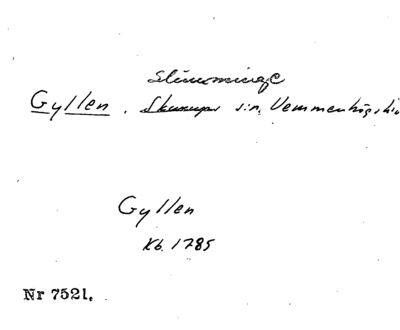 Stinuminge
Gyllen. Skurups sn, Vemmenhögs hd
Gyllen
Kb. 1785
Nr 7521.